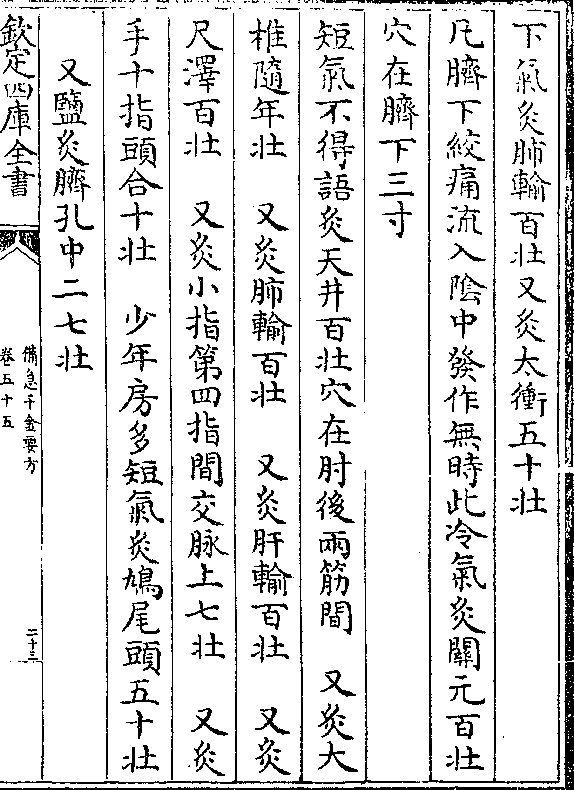 下氣灸肺輸百壯又灸太衝五十壯
凡臍下絞痛流入陰中發作無時此冷氣灸關元百壯
穴在臍下三寸
短氣不得語灸天井百壯穴在肘後兩筋間　又灸大
椎隨年壯　又灸肺輸百壯　又灸肝輸百壯　又灸
尺澤百壯　又灸小指第四指間交脉上七壯　又灸
手十指頭合十壯　少年房多短氣灸鳩尾頭五十壯
又鹽灸臍孔中二七壯
欽定四庫全書
備急千金要方
卷五十五
二十三